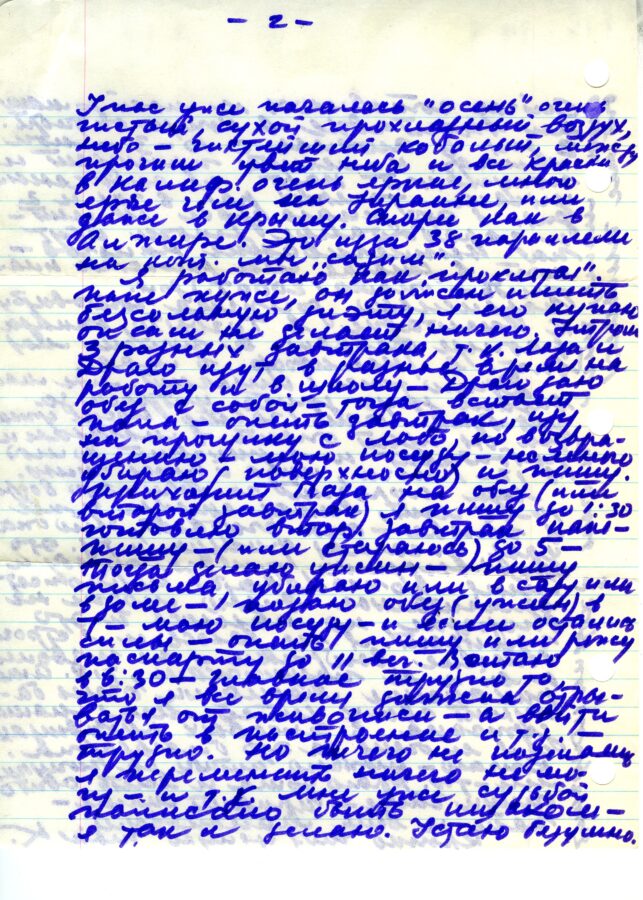 - 2 -
У нас уже началась "осень" очень
чистый, сухой прохладный воздух,
небо - чистейший кобольт, между
прочим цвет неба и все краски
в Калиф. очень яркие, много
ярче чем на Украине, или
даже в Крыму. Скорее как в
Алжире. Это из за 38 параллели
на кот. мы "сидим".
Я работаю как "проклятая".
папе хуже, он должен иметь
безсольную диэту, я его купаю
он сам не делает ничего. Утром
3 разных завтрака, т.к. Лаза и
Драго идут в разные время на
работу и в школу - Драго даю
обед с собой - тогда встает
папа - опять завтрак, иду
на прогулку с по возвра-
щению - мою посуду - немного
убираю (поверхностно) и пишу.
приходит Лаза на обед (или
второй завтрак) я пишу до 1:30
готовлю втор. завтрак папе -
пишу - (или стараюсь) до 5 -
Тогда делаю ужин - пишу
письма, убираю или в саду или
в доме - подаю обед (ужин) в
7 - мою посуду - и если остались
силы - опять пишу или режу
паспарту до 11 веч. Встаю
в 6:30 - главное трудно то,
что я все время должна отры-
ваться от живописи - а войти
опять в настроение и т.д. -
трудно. Но ничего не поделаешь
я переменить ничего не мо-
гу - и т.к. мне уже судьбой
написано быть
я так и делаю. Устаю безумно.